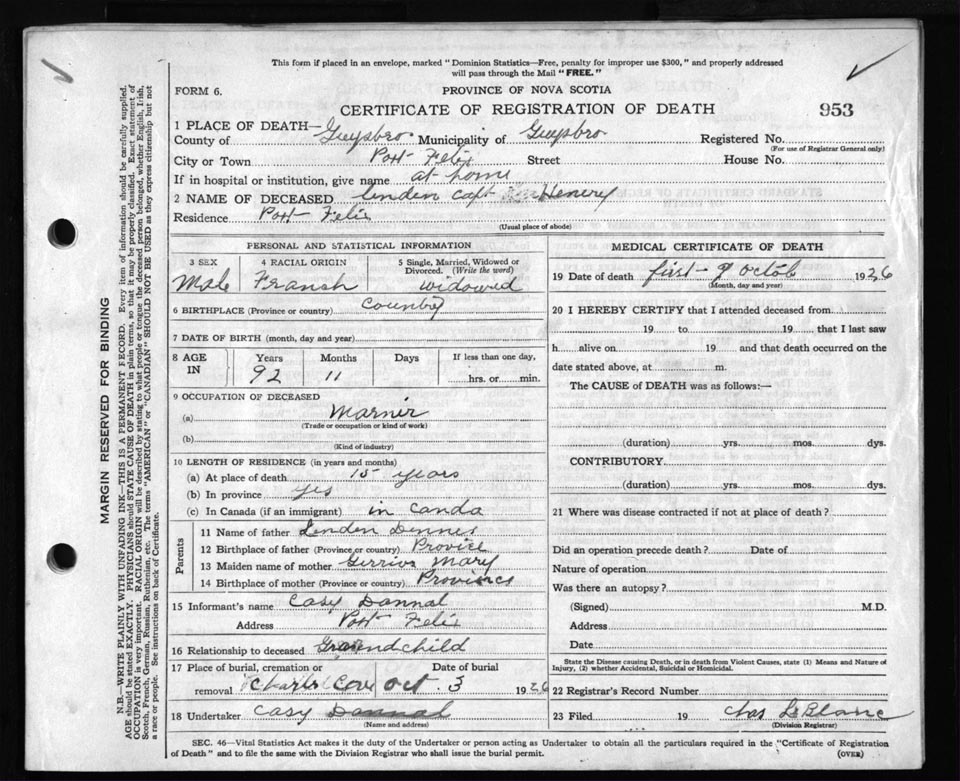 This form if placed in an envelope, marked "Dominion Statistics—Free, penalty for improper use $300," and properly addressed
will pass through the Mail "FREE."
FORM 6.
PROVINCE OF NOVA SCOTIA
CERTIFICATE OF REGISTRATION OF DEATH
953
1 PLACE OF DEATH—
County of Guysbro Municipality of Guysbro Registered No.
(For use of Registrar General only)
City or Town Port Felix Street House No.
If in hospital or institution, give name at home
2 NAME OF DECEASED linden capt Henery
Residence Port Felix
(Usual place of abode)
PERSONAL AND STATISTICAL INFORMATION
3 SEX 4 RACIAL ORIGIN 5 Single, Married, Widowed or Divorced. (Write the word)
Male Fransh widowed
6 BIRTHPLACE (Province or country) country
7 DATE OF BIRTH (month, day and year)
8 AGE IN Years Months Days If less than one day,
92 11 hrs. or min.
9 OCCUPATION OF DECEASED
(a) Marnir
(Trade or occupation or kind of work)
(b)
(Kind of industry)
10 LENGTH OF RESIDENCE (in years and months)
(a) At place of death 15 years
(b) In province yes
(c) In Canada (if an immigrant) in canda
Parents
11 Name of father Linden Dennes
12 Birthplace of father (Province or country) Provice
13 Maiden name of mother Mary
14 Birthplace of mother (Province or country) Provinces
15 Informant's name Casy Dannal
Address Port Felix
16 Relationship to deceased Grandchild
17 Place of burial, cremation or removal Date of burial
Charles Cove Oct 3 1926
18 Undertaker Casy Dannal
(Name and address)
MEDICAL CERTIFICATE OF DEATH
19 Date of death first of Octob 1926
(Month, day and year)
20 I HEREBY CERTIFY that I attended deceased from
19 to 19 , that I last saw
h alive on 19 and that death occurred on the
date stated above, at m.
The CAUSE of DEATH was as follows:—
(duration) yrs. mos. dys.
CONTRIBUTORY
(duration) yrs. mos. dys.
21 Where was disease contracted if not at place of death?
Did an operation precede death? Date of
Nature of operation
Was there an autopsy?
(Signed) M.D.
Address
Date
State the Disease causing Death, or in death from Violent Causes, state (1) Means and Nature of
Injury, (2) whether Accidental, Suicidal or Homicidal.
22 Registrar's Record Number
23 Filed 19 Chas LeBlanc
(Division Registrar)
SEC. 46—Vital Statistics Act makes it the duty of the Undertaker or person acting as Undertaker to obtain all the particulars required in the "Certificate of Registration
of Death" and to file the same with the Division Registrar who shall issue the burial permit.
(OVER)
MARGIN RESERVED FOR BINDING
N.B.—WRITE PLAINLY WITH UNFADING INK—THIS IS A PERMANENT RECORD. Every item of information should be carefully supplied.
AGE should be stated EXACTLY. PHYSICIANS should STATE CAUSE OF DEATH in plain terms, so that it may be properly classified. Exact statement of
OCCUPATION is very important. RACIAL ORIGIN will be described by stating to what people or tongue the deceased person belonged, whether English, Irish,
Scotch, French, German, Russian, Ruthenian, etc. The terms "AMERICAN" or "CANADIAN" SHOULD NOT BE USED as they express citizenship but not
a race or people. See instructions on back of Certificate.